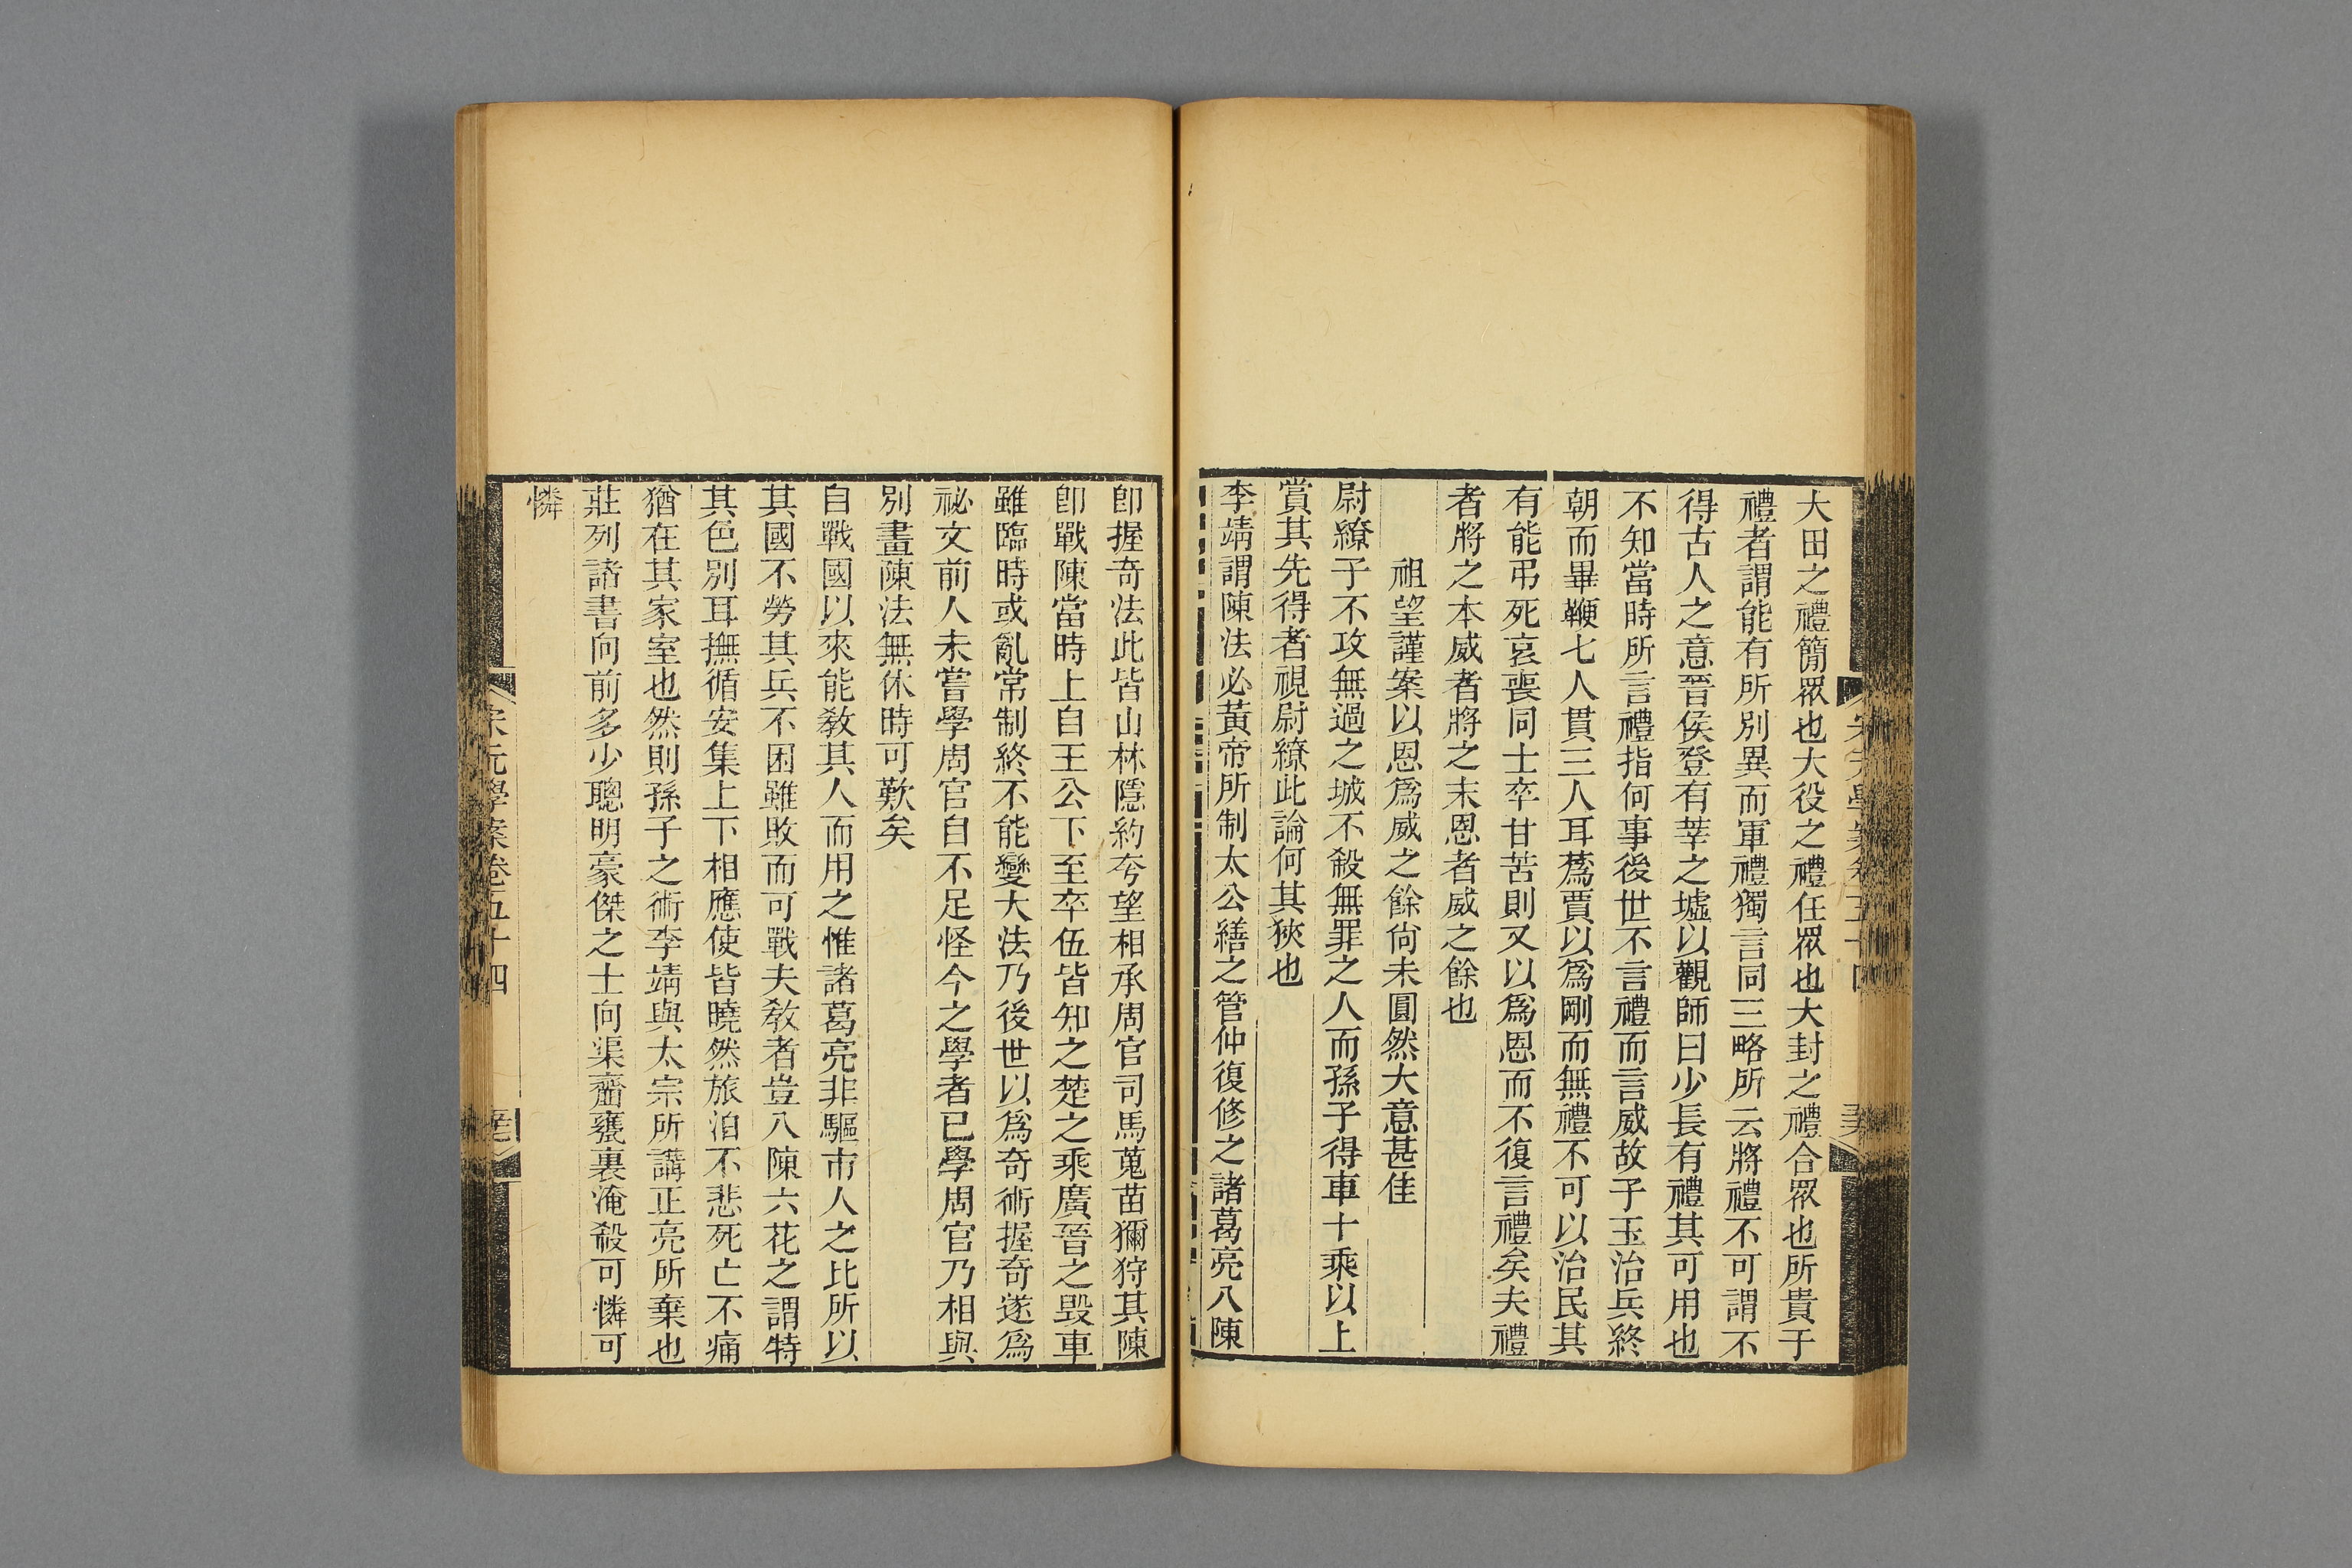 大田之禮簡眾也大役之禮任眾也大封之禮合眾也所貴于
禮者謂能有所別異而軍禮獨言同三略所云將禮不可謂不
得古人之意晉侯登有莘之墟以觀師曰少長有禮其可用也
不知當時所言禮指何事後世不言禮而言威故子玉治兵終
朝而畢鞭七人貫三人耳蒍賈以爲剛而無禮不可以治民其
有能弔死哀喪同士卒甘苦則又以爲恩而不復言禮矣夫禮
者將之本威者將之末恩者威之餘也
祖望謹案以恩爲威之餘尙未圓然大意甚佳
尉繚子不攻無過之城不殺無罪之人而孫子得車十乘以上
賞其先得者視尉繚此論何其狹也
李靖謂陳法必黃帝所制太公繕之管仲復修之諸葛亮八陳
卽握奇法此皆山林隱約夸望相承周官司馬蒐苗獮狩其陳
卽戰陳當時上自王公下至卒伍皆知之楚之乘廣晉之毀車
雖臨時或亂常制終不能變大法乃後世以爲奇術握奇遂爲
祕文前人未嘗學周官自不足怪今之學者已學周官乃相與
別畫陳法無休時可歎矣
自戰國以來能敎其人而用之惟諸葛亮非驅市人之比所以
其國不勞其兵不困雖敗而可戰夫敎者豈八陳六花之謂特
其色別耳撫循安集上下相應使皆曉然旅泊不悲死亡不痛
猶在其家室也然則孫子之術李靖與太宗所講正亮所棄也
莊列諸書向前多少聰明豪傑之士向渠虀甕裏淹殺可憐可
憐
宋元學案卷五十四